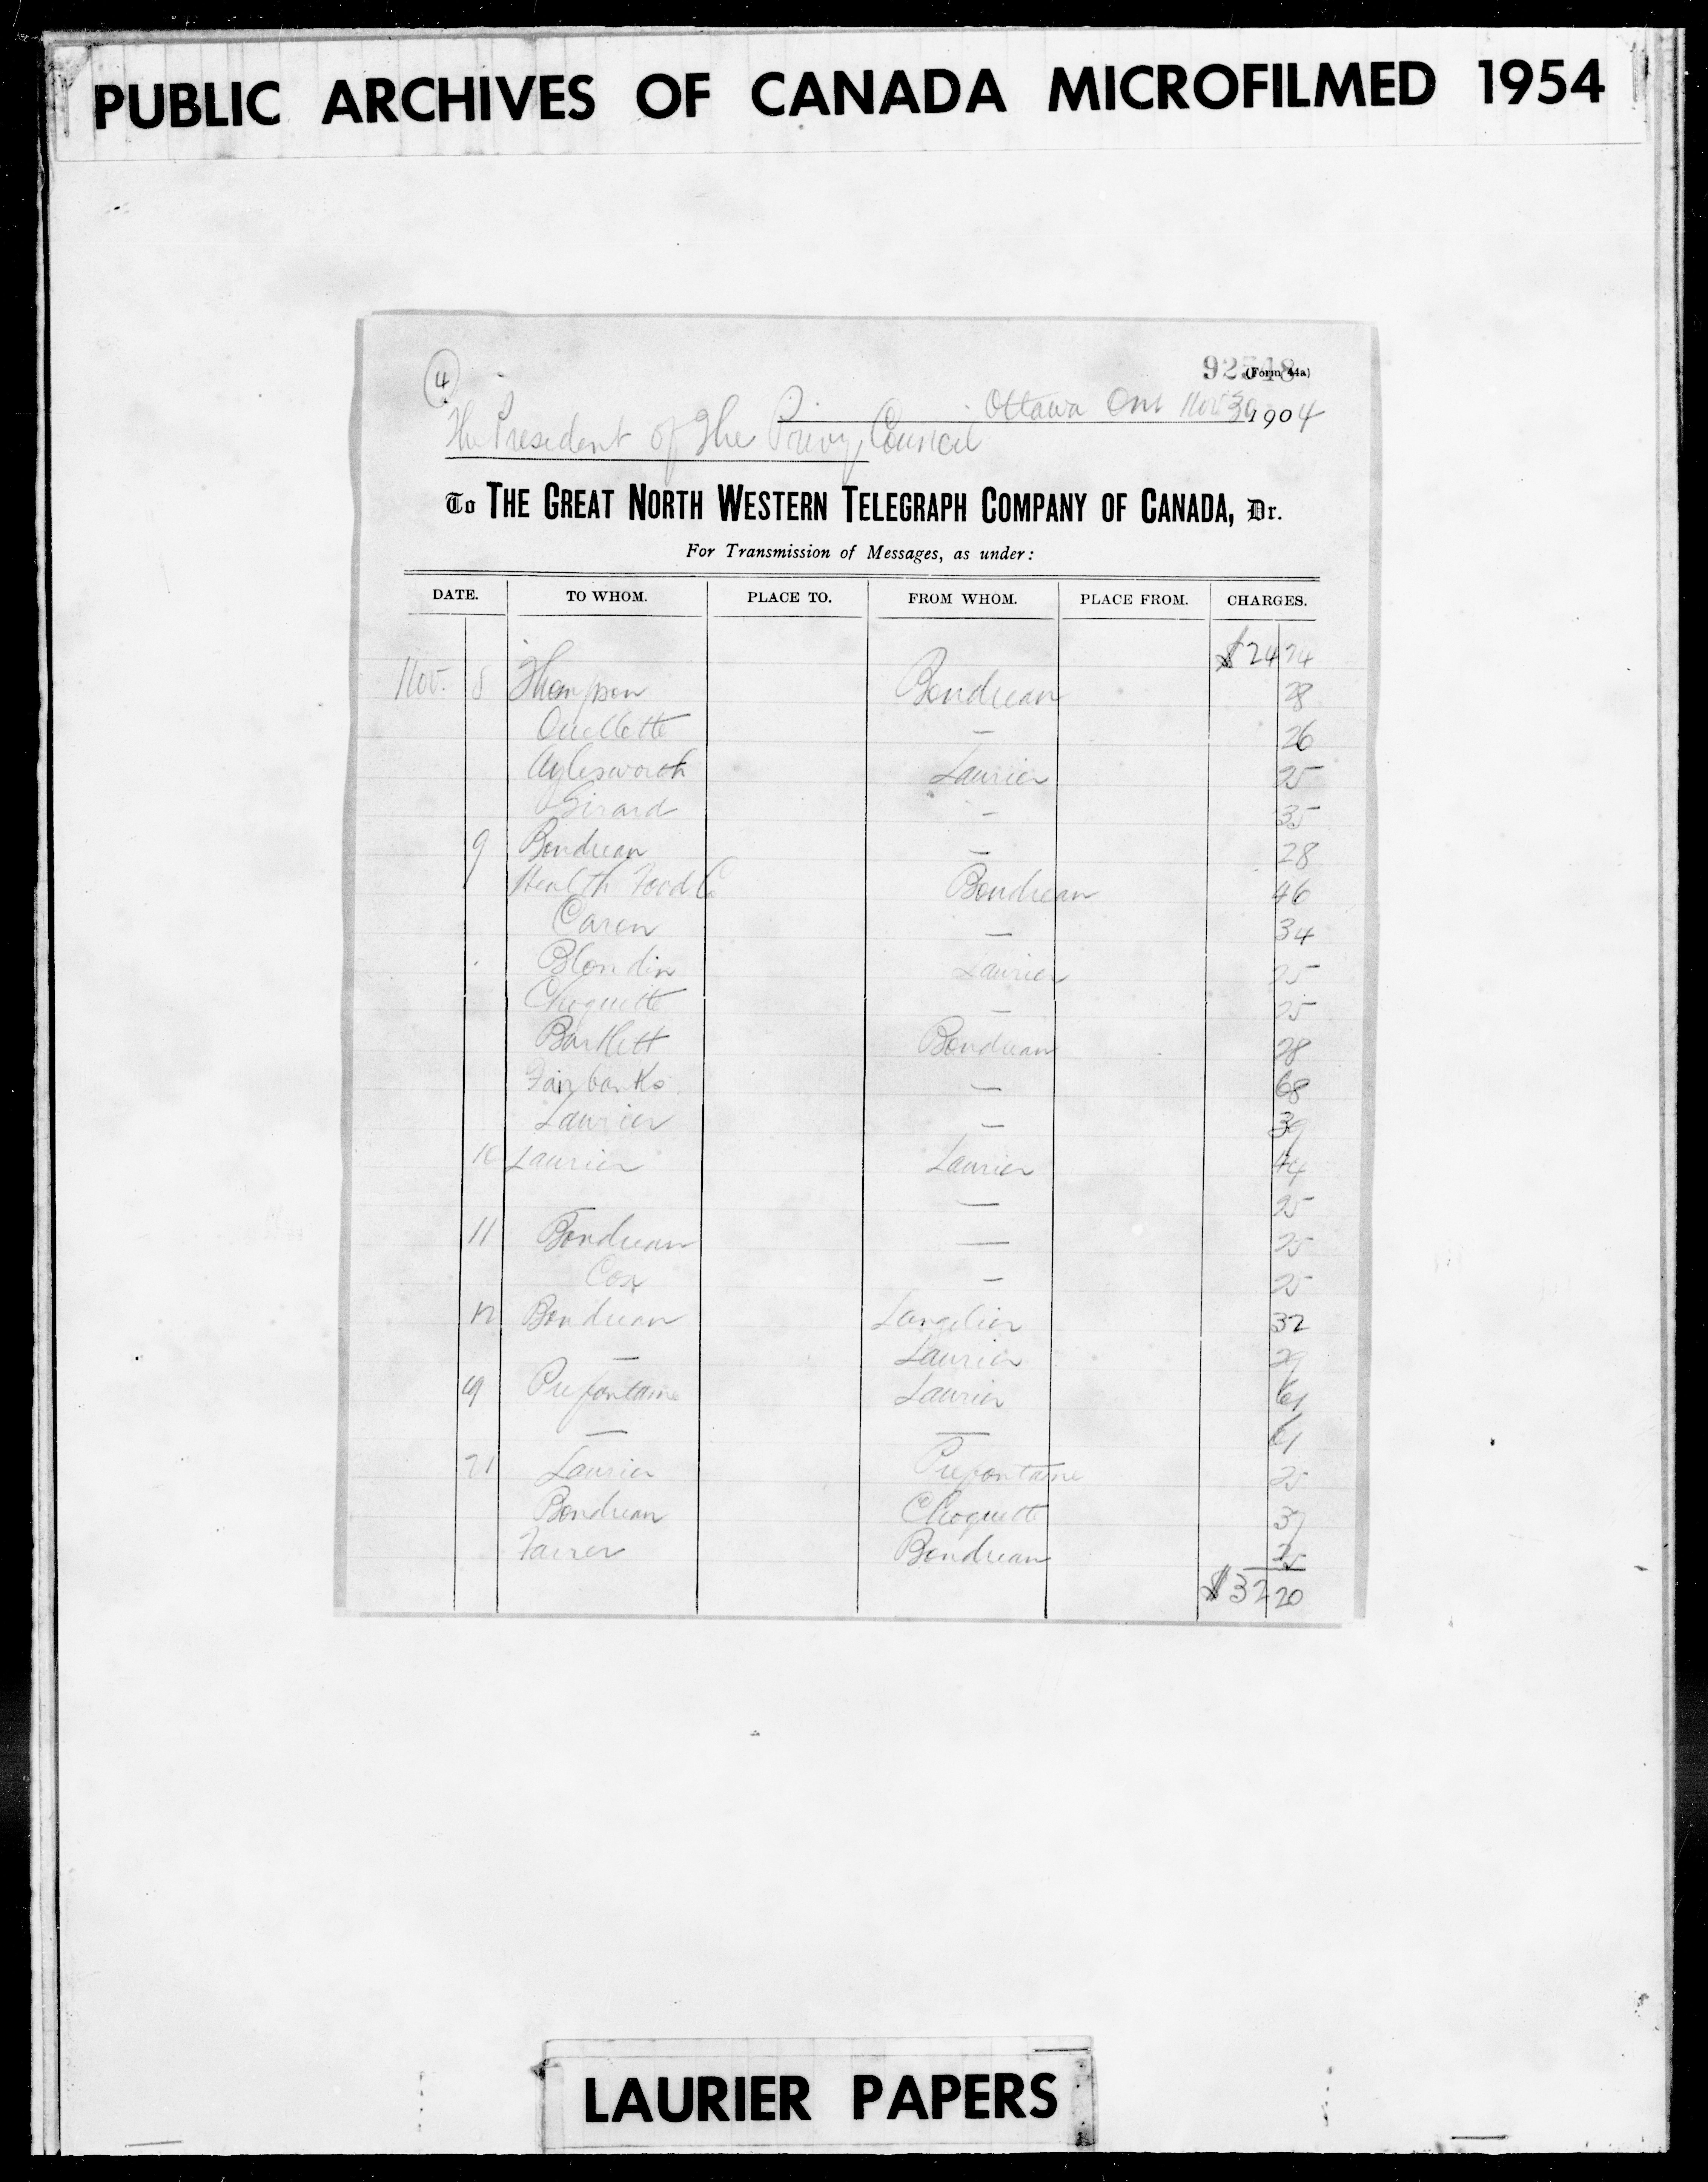 PUBLIC ARCHIVES OF CANADA MICROFILMED 1954
4
92548
(Form 44a)
Ottawa Ont Nov 30 1904
The President of The Privy Council
To THE GREAT NORTH WESTERN TELEGRAPH COMPANY OF CANADA, Dr.
For Transmission of Messages, as under:
DATE. TO WHOM. PLACE TO. FROM WHOM. PLACE FROM. CHARGES.
$24 24
Nov. 8 Thompson Boudreau 28
Ouellette — 26
Aylesworth Laurier 25
Girard — 35
9 Boudreau — 28
Health Food Co Boudreau 46
Caron — 34
Blondin Laurier 25
Choquette — 25
Bartlett Boudreau 28
Fairbanks — 68
Laurier — 39
10 Laurier Laurier 44
— 25
11 Boudreau — 25
Cox — 25
12 Boudreau Langelier 32
— Laurier 29
19 Prefontaine Laurier 61
— — 61
21 Laurier Prefontaine 25
Boudreau Choquette 37
Farrer Boudreau 25
$32 20
LAURIER PAPERS